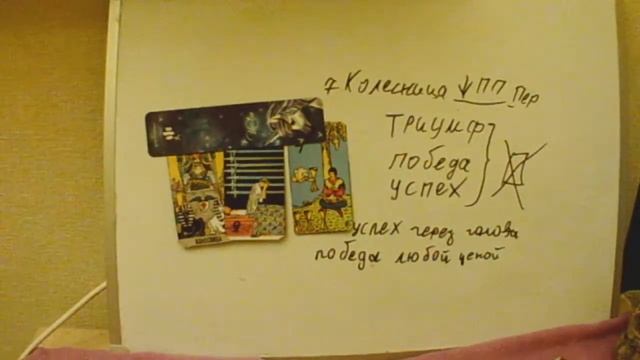 7 Колесница ↓ПП Пер
Триумф
победа
успех
успех через голова
победа любой ценой
КОЛЕСНИЦА